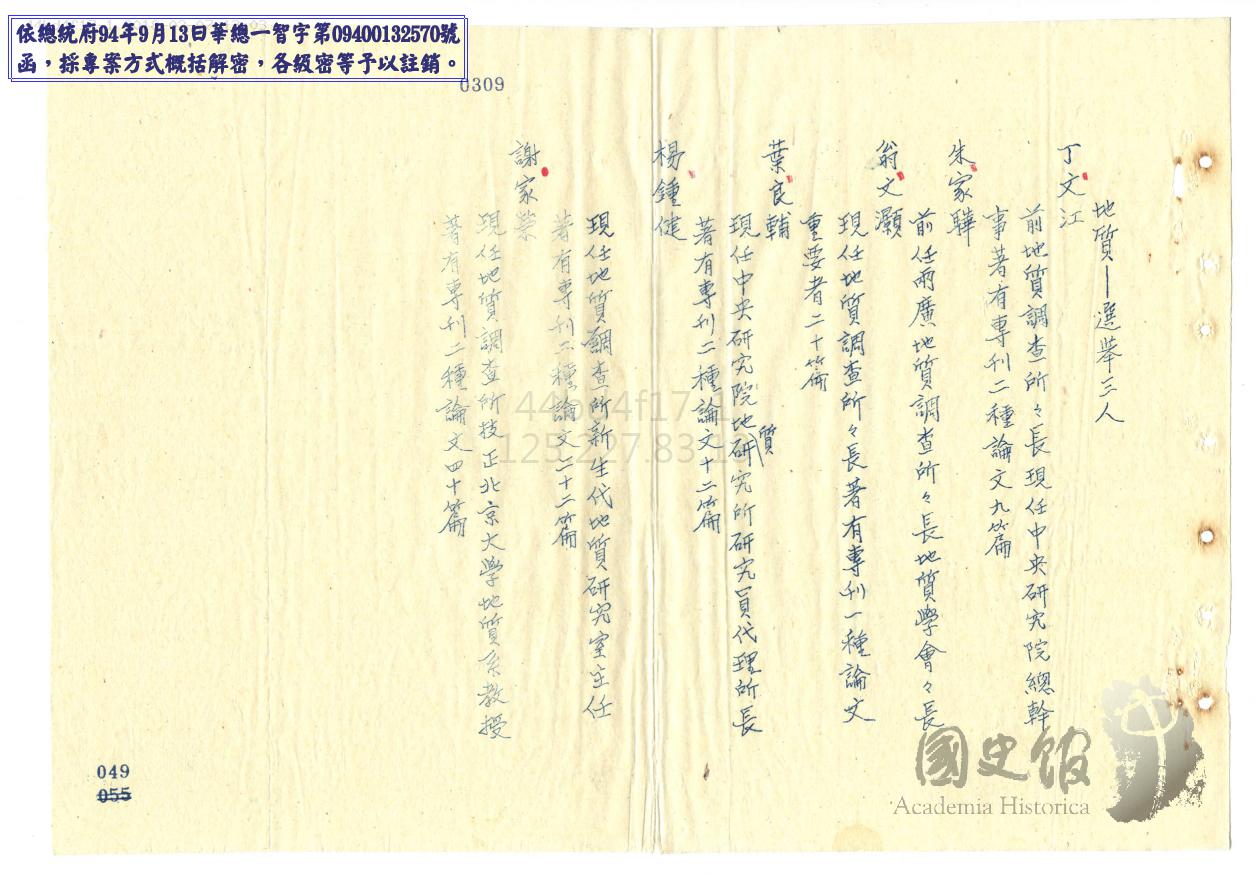 依總統府94年9月13日華總一智字第09400132570號
函，採專案方式概括解密，各級密等予以註銷。
0309
地質—選舉三人
丁文江
前地質調查所々長現任中央研究院總幹
事著有專刊二種論文九篇
朱家驊
前任兩廣地質調查所々長地質學會々長
翁文灝
現任地質調查所々長著有專刊一種論文
重要者二十篇
葉良輔
現任中央研究院地質研究所研究員代理所長
著有專刊二種論文十二篇
楊鍾健
現任地質調查所新生代地質研究室主任
著有專刊二種論文二十二篇
謝家榮
現任地質調查所技正北京大學地質系教授
著有專刊二種論文四十篇
049
055
國史館
Academia Historica